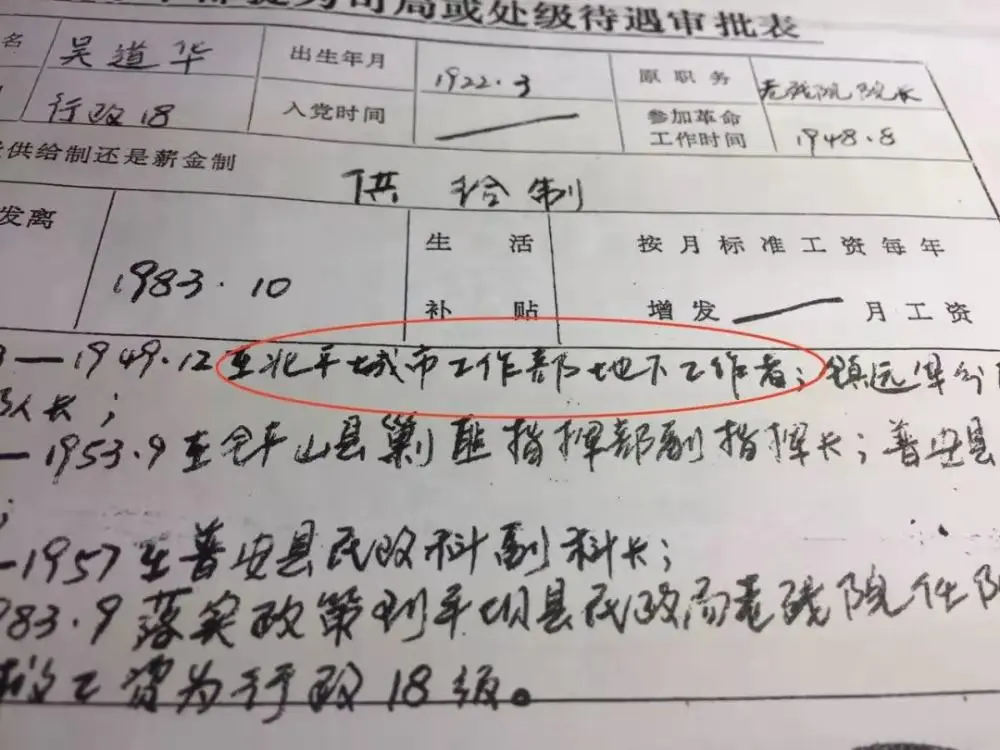 局或处级待遇审批表
名 吴道华 出生年月 1922.3 原职务 老残院院长
行政18 入党时间 参加革命工作时间 1948.8
供给制还是薪金制 供给制
发离 1983.10 生活补贴 按月标准工资每年增发 月工资
—1949.12在北平城市工作部地下工作者;镇远军分
队长;
—1953.9在 山县剿匪指挥部副指挥长;普安县
;
—1957在普安县民政科副科长;
983.9落实政策到平坝县民政局老残院任院
工资为行政18级。